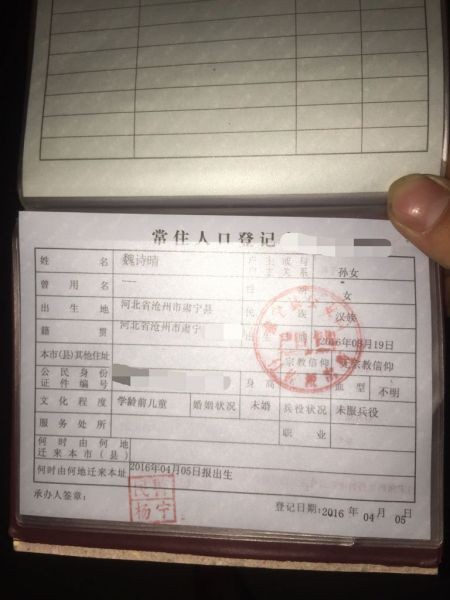 常住人口登记
姓 名 魏诗晴 户主或与户主关系 孙女
曾用名 — 性别 女
出生地 河北省沧州市肃宁县 民族 汉族
籍贯 河北省沧州市肃宁县 2016年03月19日
本市(县)其他住址 宗教信仰 无宗教信仰
公民身份证件编号 身高 血型 不明
文化程度 学龄前儿童 婚姻状况 未婚 兵役状况 未服兵役
服务处所 职业
何时由何地迁来本市(县)
何时由何地迁来本址 2016年04月05日报出生
承办人签章: 杨宁 登记日期:2016年04月05日